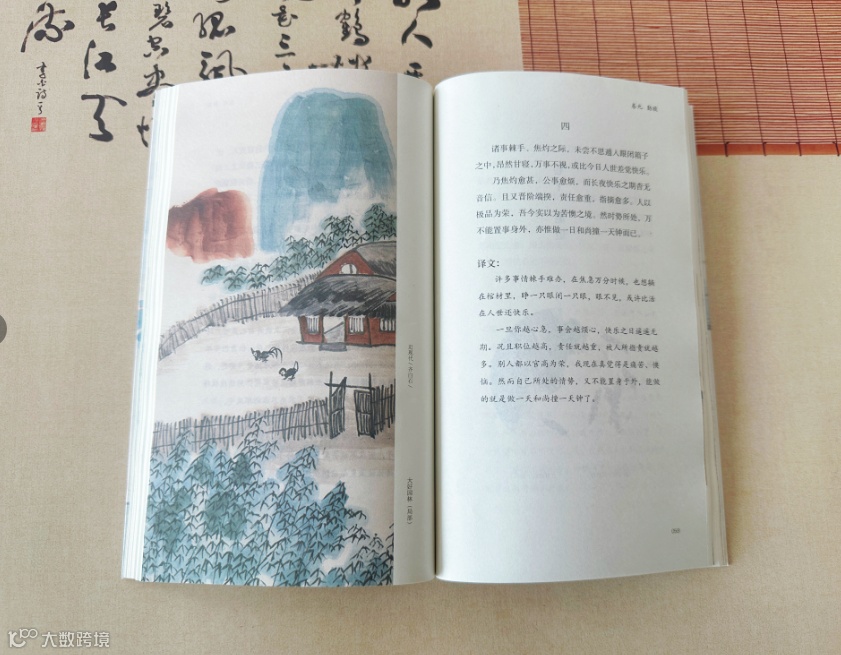 人
鹤
三
长江天
四
诸事棘手、焦灼之际，未尝不思遁入眼闭箱子
之中，昂然甘寝，万事不视，或比今日人世差觉快乐。
乃焦灼愈甚，公事愈烦，而长夜快乐之期杳无
音信。且又晋阶端揆，责任愈重，指摘愈多。人以
极品为荣，吾今实以为苦懊之境。然时势所处，万
不能置事身外，亦惟做一日和尚撞一天钟而已。
译文：
许多事情棘手难办，在焦急万分时候，也想躺
在棺材里，睁一只眼闭一只眼，眼不见，或许比活
在人世还快乐。
一旦你越心急，事会越烦心，快乐之日遥遥无
期。况且职位越高，责任就越重，被人所指责就越
多。别人都以官高为荣，我现在真觉得是痛苦、懊
恼。然而自己所处的情势，又不能置身于外，能做
的就是做一天和尚撞一天钟了。
大数跨境